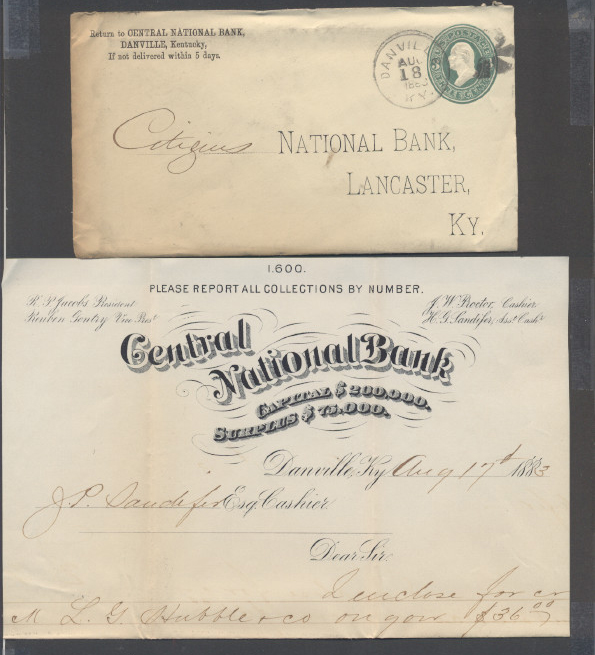 Return to CENTRAL NATIONAL BANK,
DANVILLE, Kentucky,
If not delivered within 5 days.
DANVILLE
AUG
18
KY.
U.S. POSTAGE
Citizens NATIONAL BANK,
LANCASTER,
KY.
1.600.
PLEASE REPORT ALL COLLECTIONS BY NUMBER.
R. P. Jacobs President
Reuben Gentry Vice Prest
J. W. Proctor, Cashier
H. G. Sandifer, Asst Cashr
Central
National Bank
CAPITAL $200,000.
SURPLUS $75,000.
Danville, Ky Aug 17th 1883
J P. Sandifer Esq. Cashier
Dear Sir:
I enclose for cr
L. G. Hubble & co on you $36 00